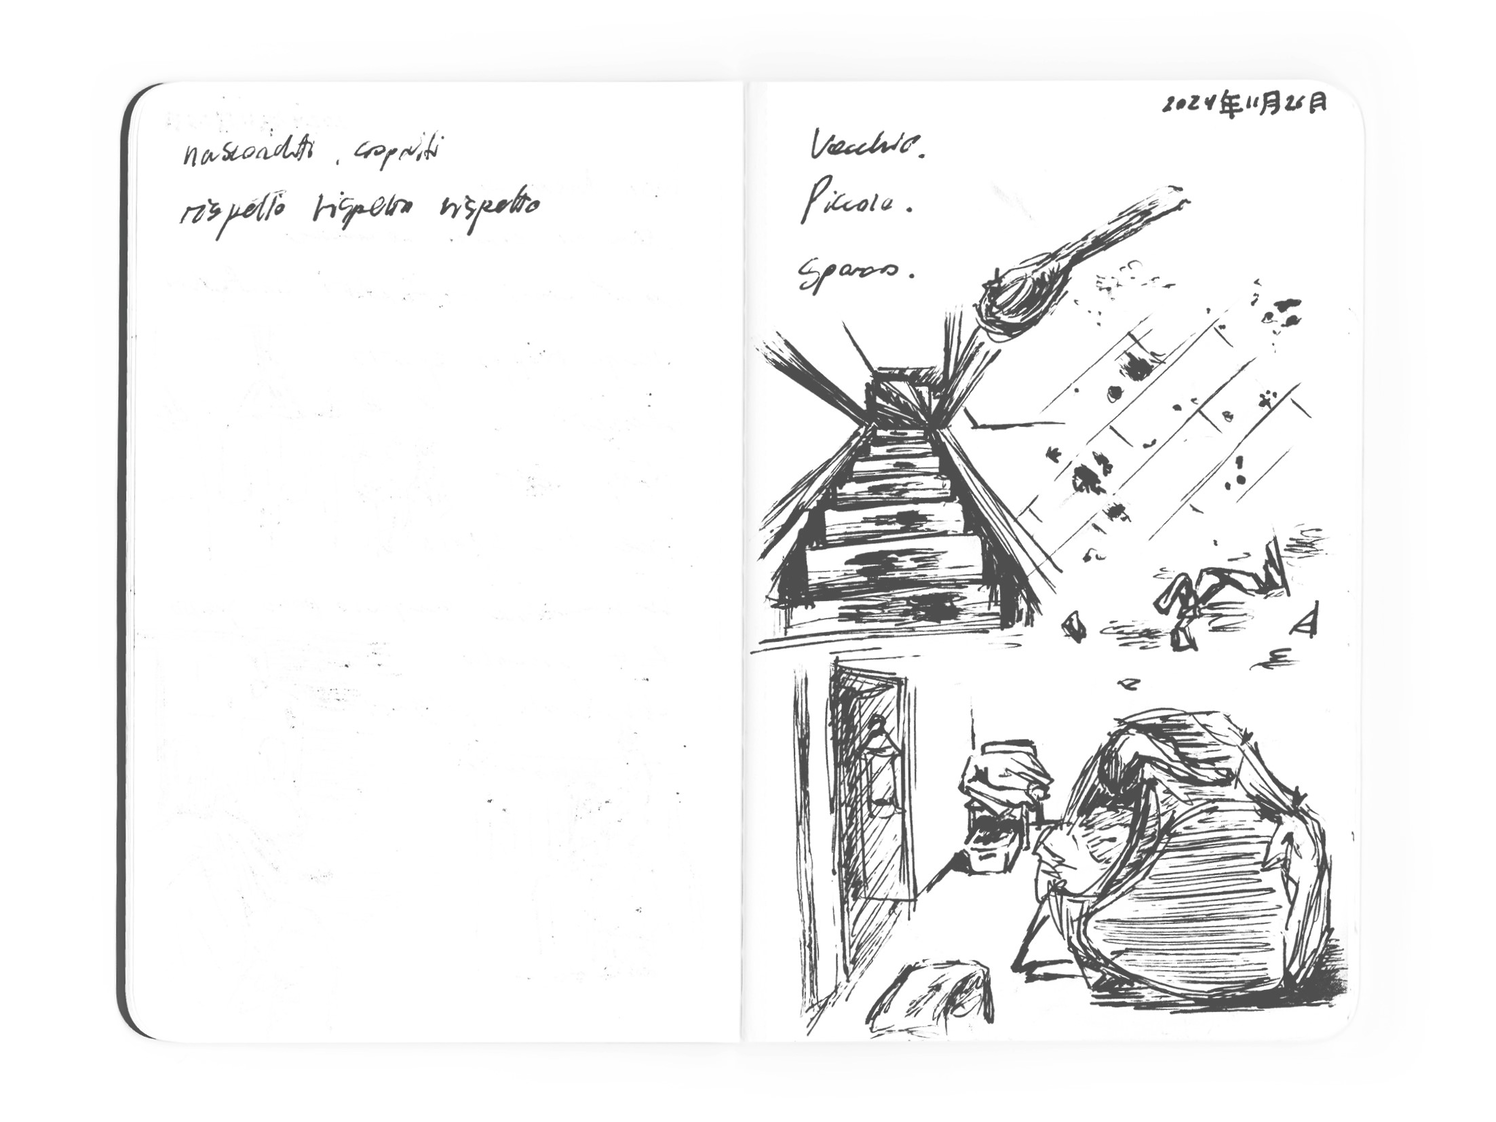 nascondili, cospiriti
rispetto rispetto rispetto
2024年11月26日
Vecchio.
Piccolo.
Sparo.